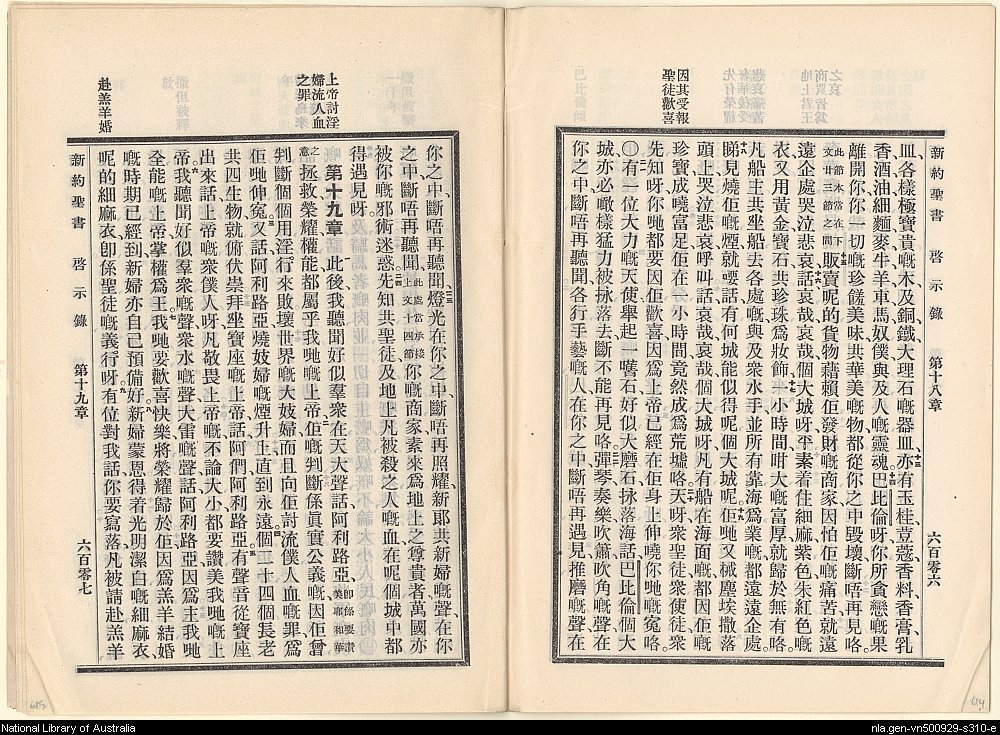 新約聖書 啓示錄 第十八章 六百零六
皿、各樣極寶貴嘅木、及銅鐵大理石嘅器皿、十三亦有玉桂荳蔻香料香膏乳
香酒油細麵麥牛羊車馬奴僕與及人嘅靈魂。十四巴比倫呀、你所貪戀嘅果
離開你、你一切嘅珍饈美味共華美嘅物、都從你之中毀壞、斷唔再見咯。
此節本當在下文廿三節之間十五販賣呢的貨物、藉賴佢發財嘅商家、因怕佢嘅痛苦、就遠
遠企處哭泣悲哀話、十六哀哉哀哉、個大城呀、平素着住細麻紫色朱紅色嘅
衣、又用黃金寶石共珍珠爲妝飾、十七一小時間、咁大嘅富厚就歸於無有咯。
凡船主共坐船去各處嘅、與及衆水手、並所有靠海爲業嘅、都遠遠企處。
十八睇見燒佢嘅煙、就嘤話、有何城能似得呢個大城呢、十九佢哋又㨢塵埃撒落
頭上、哭泣悲哀呼叫話、哀哉哀哉、個大城呀、凡有船在海面嘅、都因佢嘅
珍寶成嘵富足、佢在一小時間、竟然成爲荒墟咯。二十天呀、衆聖徒衆使徒衆
先知呀、你哋都要因佢歡喜、因爲上帝已經在佢身上伸嘵你哋嘅寃咯。
〇二一有一位大力嘅天使、舉起一嚿石、好似大磨石、抰落海、話、巴比倫個大
城、亦必噉樣猛力被抰落去、斷不能再見咯。二二彈琴奏樂吹簫吹角嘅聲、在
你之中斷唔再聽聞、各行手藝嘅人、在你之中斷唔再遇見、推磨嘅聲、在
因其受報
聖徒歡喜
你之中斷唔再聽聞、二三燈光在你之中斷唔再照耀、新郎共新婦嘅聲、在你
之中斷唔再聽聞、此處當承接上文十四節你嘅商家、素來爲地上之尊貴者、萬國亦
被你嘅邪術迷惑、二四先知共聖徒、及地上凡被殺之人嘅血、在呢個城中都
得遇見呀。
第十九章 一此後我聽聞好似羣衆在天大聲話、阿利路亞、卽係要讚美耶和華
之意拯救榮耀權能、都屬乎我哋上帝、二佢嘅判斷、係眞實公義嘅、因佢曾
判斷個個用淫行來敗壞世界嘅大妓婦、而且向佢討流僕人血嘅罪、爲
佢哋伸寃。三又話、阿利路亞、燒妓婦嘅煙升上直到永遠。四個二十四個長老
共四生物、就俯伏崇拜坐寶座嘅上帝話、阿們、阿利路亞。五有聲音從寶座
出來話、上帝嘅衆僕人呀、凡敬畏上帝嘅、不論大小、都要讚美我哋嘅上
帝。六我聽聞好似羣衆嘅聲、衆水嘅聲、大雷嘅聲話、阿利路亞、因爲主我哋
全能嘅上帝掌權爲王。七我哋要歡喜快樂、將榮耀歸於佢、因爲羔羊結婚
嘅時期已經到、新婦亦自己預備好。八新婦蒙恩得着光明潔白嘅細麻衣、
呢的細麻衣、卽係聖徒嘅義行呀。九有位對我話、你要寫落、凡被請赴羔羊
新約聖書 啓示錄 第十九章 六百零七
上帝討淫
婦流人血
之罪
赴羔羊婚
National Library of Australia
nla.gen-vn500929-s310-e